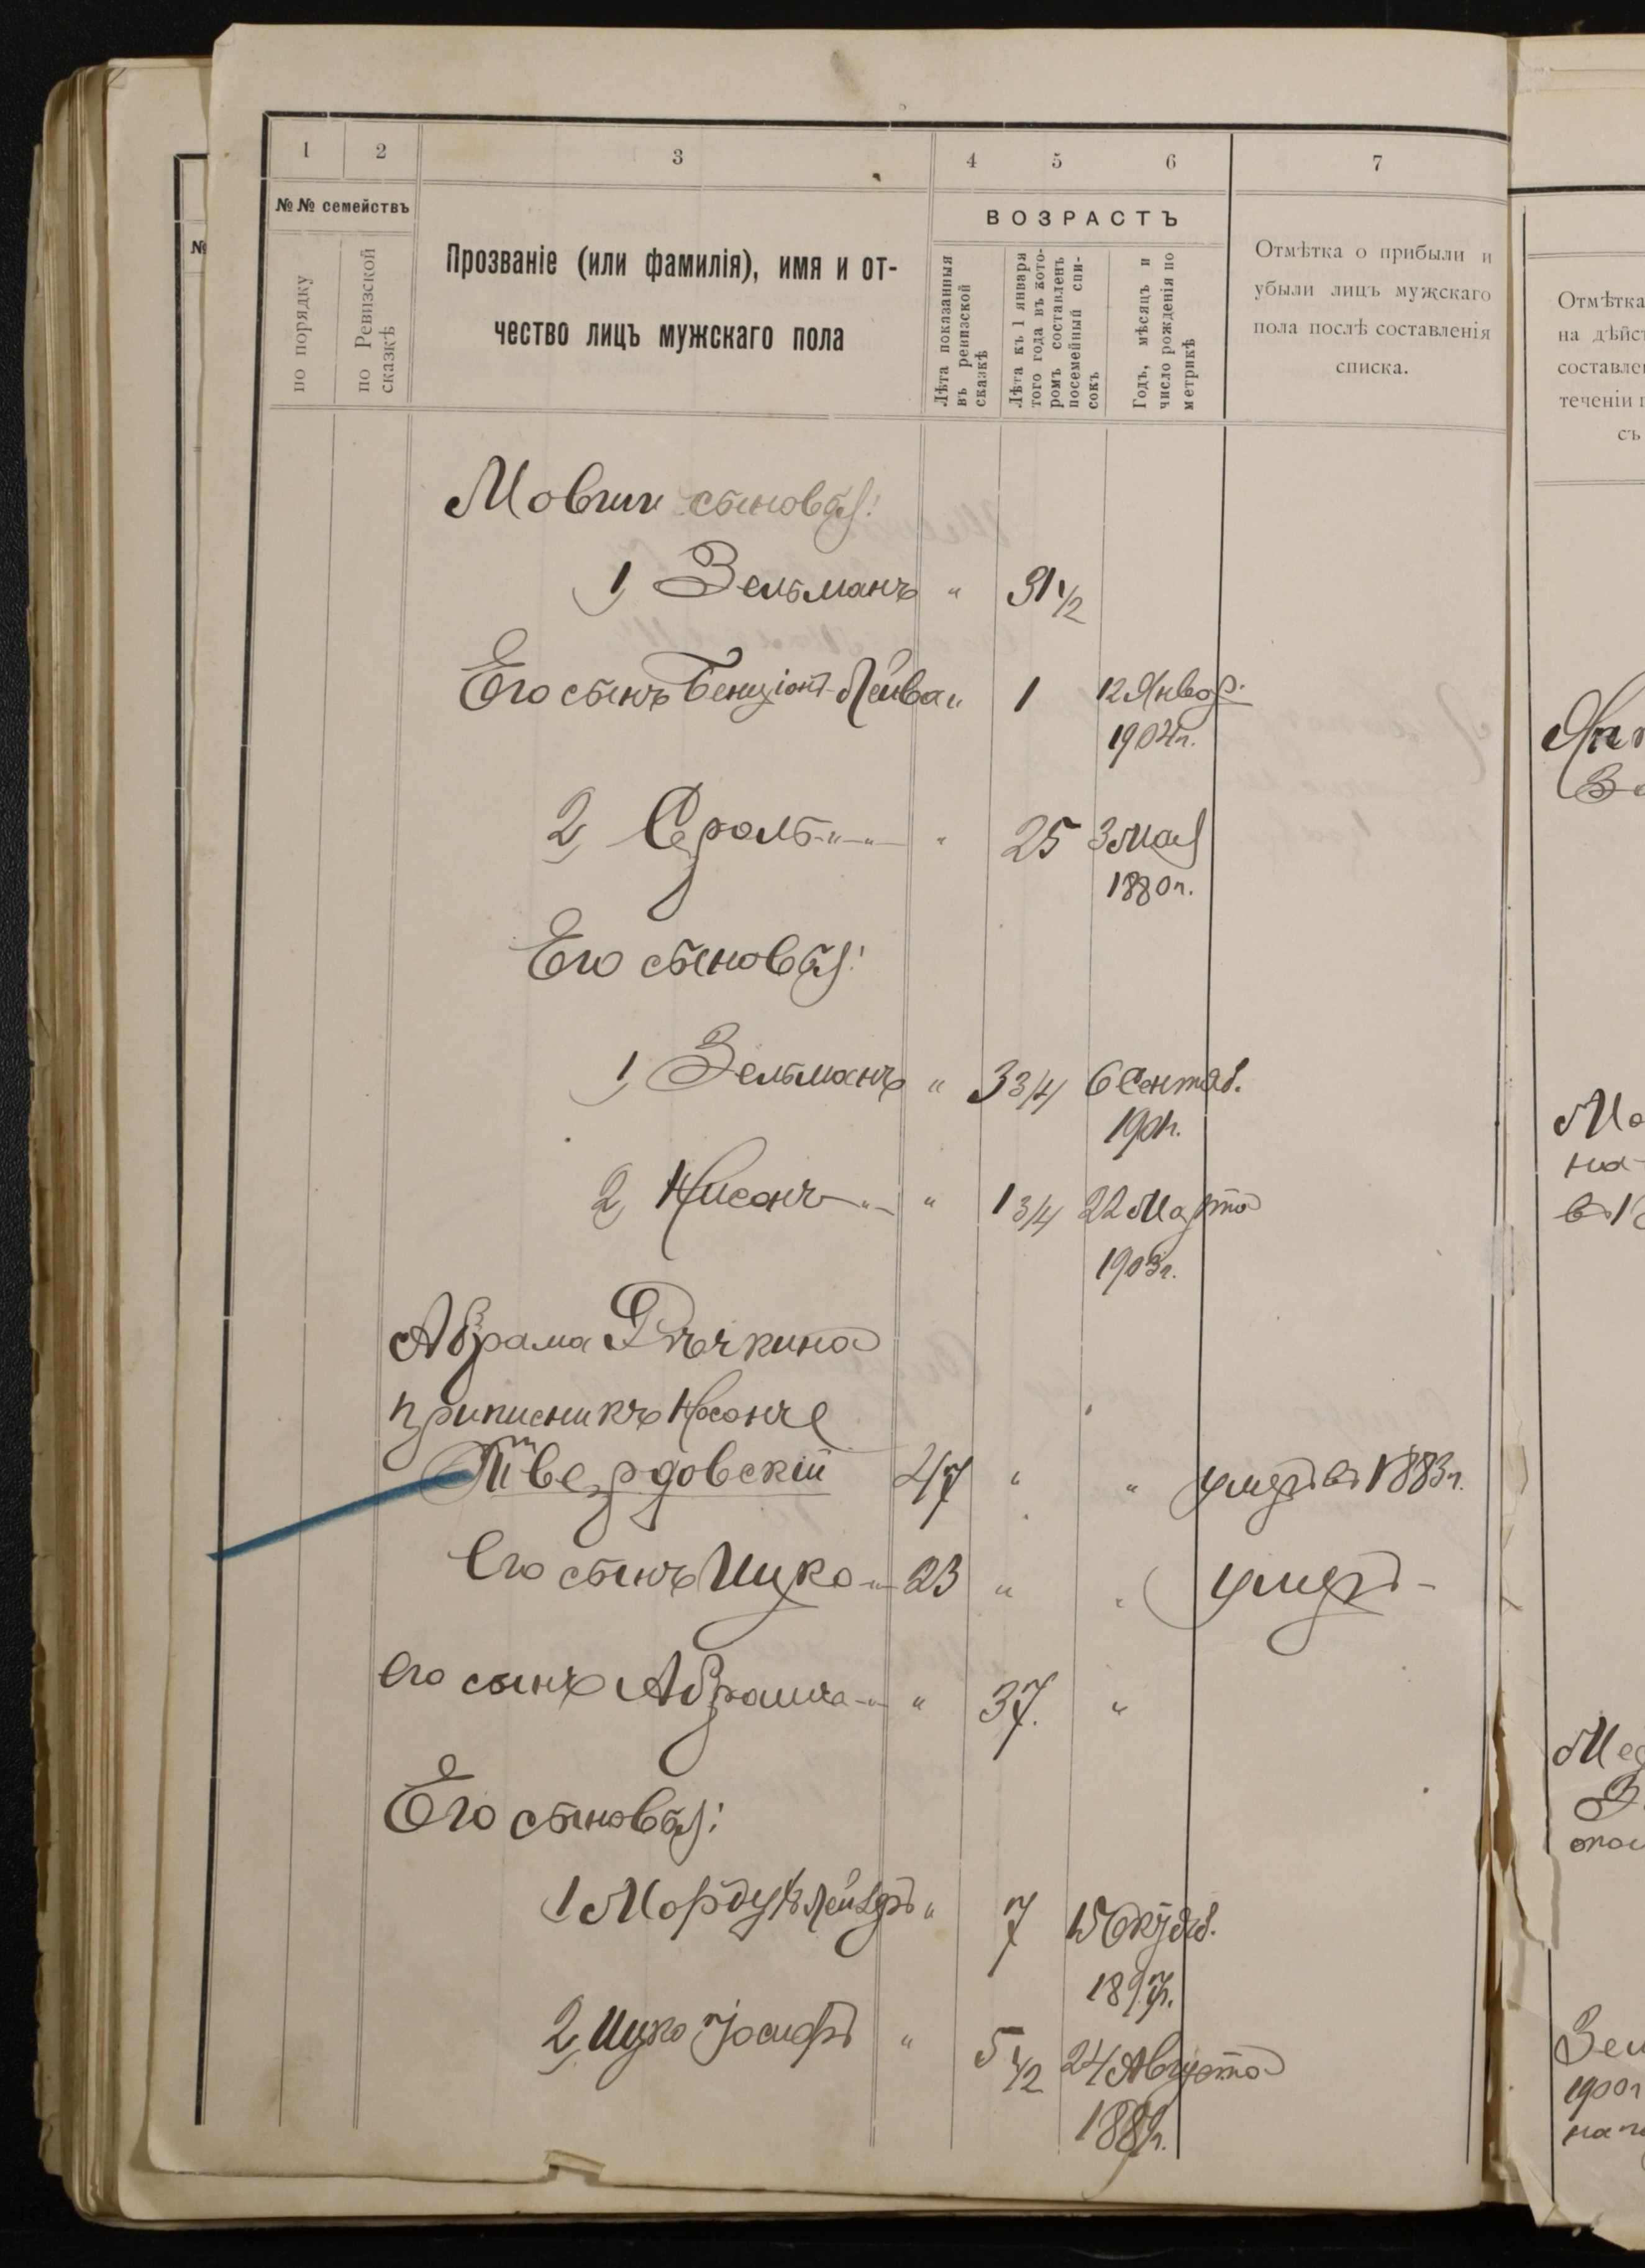 1
2
3
4
5
6
7
№№ семействъ
по порядку
по Ревизской
сказкѣ
Прозваніе (или фамилія), имя и от-
чество лицъ мужскаго пола
ВОЗРАСТЪ
Лѣта показанныя
въ ревизской
сказкѣ
Лѣта къ 1 января
того года въ кото-
ромъ составленъ
посемейный спи-
сокъ
Годъ, мѣсяцъ и
число рожденія по
метрикѣ
Отмѣтка о прибыли и
убыли лицъ мужскаго
пола послѣ составленія
списка.
№
Отмѣтка
на дѣйст
составлен
теченіи г
съ
Мовши сыновья:
1, Зельманъ " 31 1/2
Его сынъ Бенціонъ-Лейба " 1 12 Январ.
1904 г.
2, Сроль " 25 3 Мая
1880 г.
Его сыновья:
1, Зельманъ " 3 3/4 6 Сентяб.
1901 г.
2, Нисонъ " 1 3/4 22 Марта
1903 г.
Абрама
приписникъ
Твердовскій 47 " " умеръ въ 1883 г.
Его сынъ Ицко 23 " " умеръ
Его сынъ Абрамъ " 37. "
Его сыновья:
1 Мордухъ Лейзеръ " 7 15 Октяб.
1897 г.
2, Ицко Іосифъ " 5 1/2 24 Августа
Мо
на
Зел
1900 г